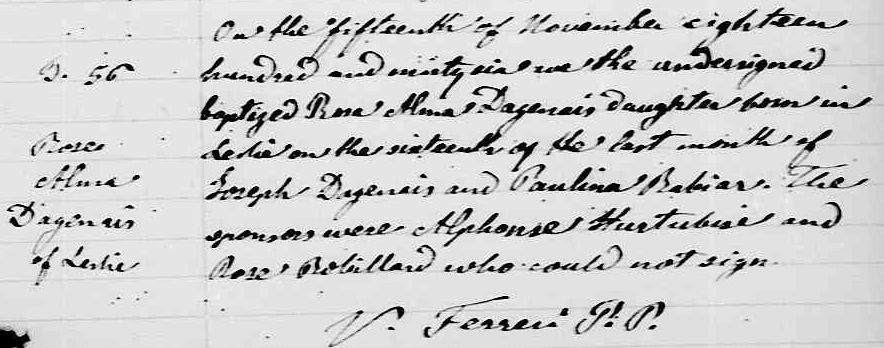 On the fifteenth of November eighteen
B. 56
hundred and ninty six we the undersigned
baptized Rosa Alma Dagenais daughter born in
Rose
Leslie on the sixteenth of the last month of
Alma
Joseph Dagenais and Paulina Babiar. The
Dagenais
sponsors were Alphonse Hurtubise and
of Leslie
Rose Robillard who could not sign.
V. Ferreri P. P.